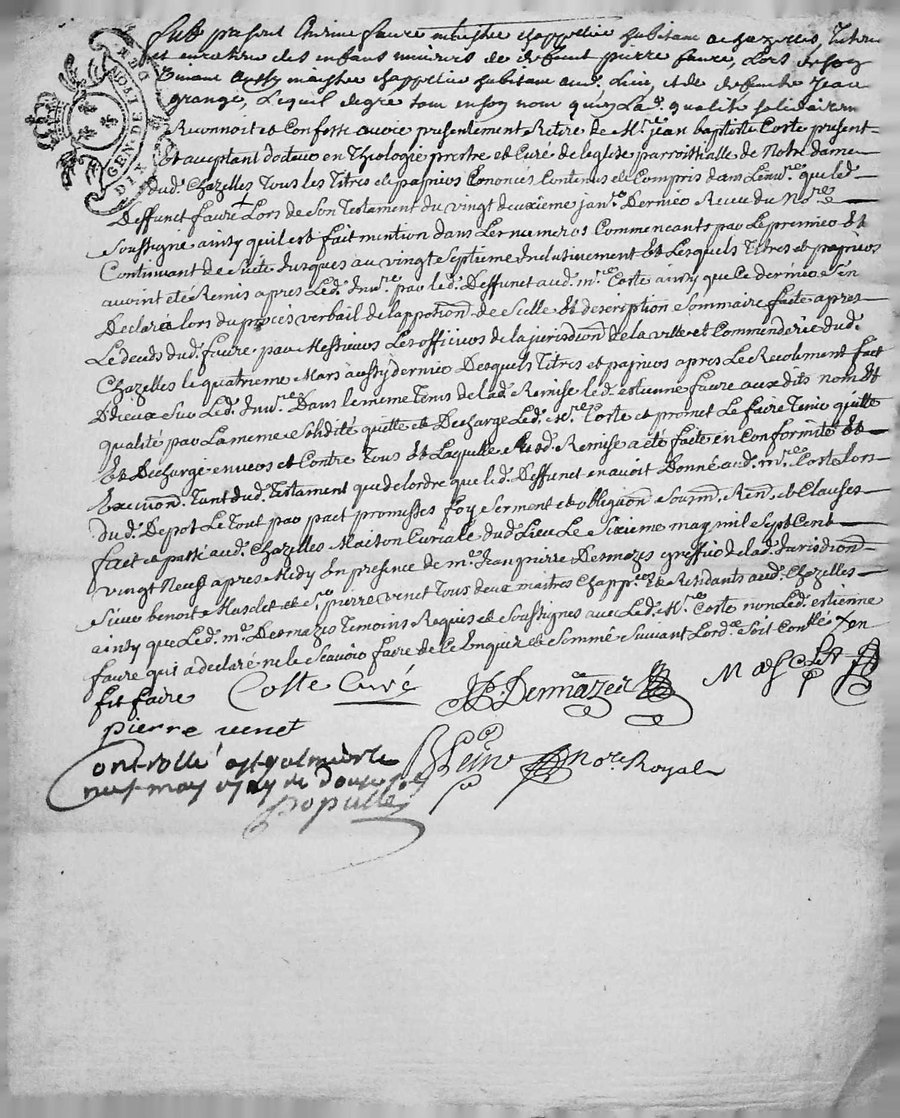 GEN. DE LYON
DIX DEN
fut present Etienne faure maistre chappellier habitant a chazelles, tuteur
et curateur des enfans mineurs de defunt pierre faure, Lors
vivant aussy maistre chappellier habitant aud. Lieu, et de defunte
grange, Lequel degre tant en son nom quen Lad. qualité solidairem
Reconnoit et Confesse avoir presentement Retiré de Mre. jean baptiste Coste present
Et acceptant docteur en Theologie prestre et Curé de leglise parroissialle de Notre dame
dud. Chazelles Tous les Titres et papiers Enoncés Contenus et Compris dans Linvre. que led.
Deffunct faure Lors de Son Testament du vingt deuxieme janvo. Dernier Receu du Nore.
Soussigné ainsy quil est fait mention dans Les numeros Commencants par Le premier Et
Continuant de suite Jusques au vingt Septieme Inclusivement Et Lesquels titres et papiers
avoint eté Remis apres Led. Invre. par led. Deffunct aud. mre. Coste ainsy que ce dernier
Declaré lors du procés verbail de lapposion. de Scellé Et description Sommaire faite apres
Le deceds dud. faure par Messieurs Les officiers de la jurisdion. de la ville et Commenderie dud.
Chazelles le quatrieme Mars aussy dernier Desquels Titres et papiers apres Le Recolement fait
Dicieux Sur Led. Invre. Dans le meme Tems de lad. Remise led. estienne faure aux dits nom Et
qualité par La meme Solidité quitte et Decharge Led. Mre. Coste et promet Le faire Tenir quitte
Et Dechargé envers et Contre Tous Et Laquelle Remise a été faite en Conformité Et
Execuon. Tant dud. Testament que de lordre que led. Deffunct en avoit Donné aud. mre. Coste lors
dud. Depot Le Tout par pact promesses foy Serment et obligaon. Soumon. Renon. et Clauses
fait et passé aud. Chazelles Maison Curiale dud. Lieu Le Sixieme may mil Sept Cent
vingt Neuf apres Midy En presence de mre. Jean pierre Desmazes greffier de lad. Jurisdion.
Sieur benoit Masclet et Sr. pierre venet Tous deux maitres Chappers. Et Residants aud. Chazelles
ainsy que Led. mre. Desmazes Temoins Requis et Soussignes avec Led. Mre. Coste non Led. estienne
faure qui a declaré ne le Scavoir faire de ce Enquis et Sommé Suivant Lorde. Soit Contlé
fit faire
Coste Curé
Desmazes
Masclet
pierre venet
Controllé a st galmier le
neuf may
Nore. Royal